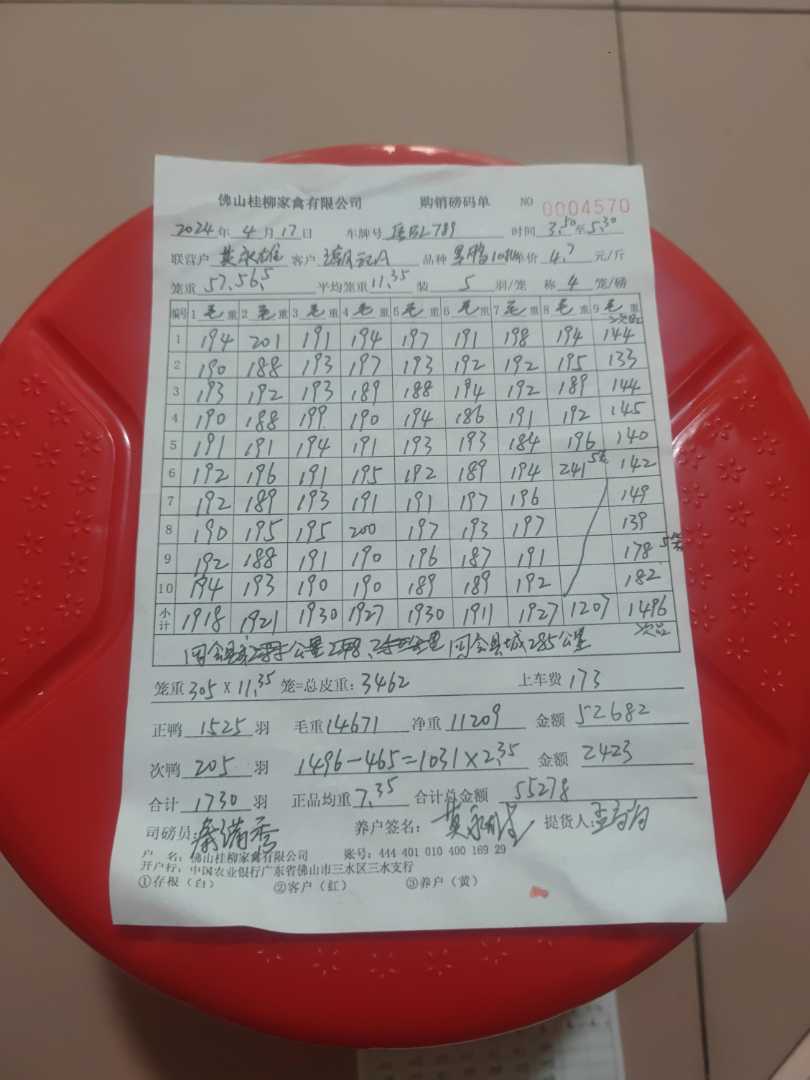 佛山桂柳家禽有限公司 购销磅码单 NO 0004570
2024年 4月 17日 车牌号 BL789 时间 3.50至5.30
联营户 黄永雄 客户 品种 单价 4.7 元/斤
笼重 57.56.5 平均笼重 11.35 装 5 羽/笼 称 4 笼/磅
编号 1 毛重 2 毛重 3 毛重 4 毛重 5 毛重 6 毛重 7 毛重 8 毛重 9 毛重 次品
1 194 201 191 194 197 191 198 194 144
2 190 188 193 197 193 192 192 195 133
3 193 192 193 189 188 194 192 189 144
4 190 188 199 190 194 186 191 192 145
5 191 191 194 191 193 193 184 196 140
6 192 196 191 195 192 189 194 241 5笼 142
7 192 189 193 191 191 197 196 149
8 190 195 195 200 197 193 197 139
9 192 188 191 190 196 187 191 178 5笼
10 194 193 190 190 189 189 192 182
小计 1918 1921 1930 1927 1930 1911 1927 1207 1496
次品
回会县城285公里
笼重 305 X 11.35 笼=总皮重: 3462 上车费 173
正鸭 1525 羽 毛重 14671 净重 11209 金额 52682
次鸭 205 羽 1496-465=1031×2.35 金额 2423
合计 1730 羽 正品均重 7.35 合计总金额 55278
司磅员: 养户签名: 黄永雄 提货人:
户 名: 佛山桂柳家禽有限公司 账号: 444 401 010 400 169 29
开户行: 中国农业银行广东省佛山市三水区三水支行
①存根(白) ②客户(红) ③养户(黄)